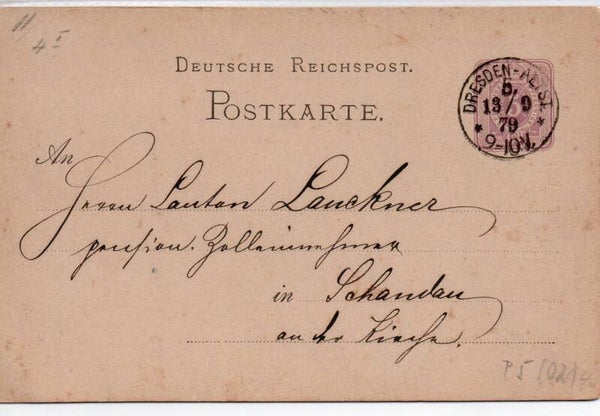 4 I
DEUTSCHE REICHSPOST.
POSTKARTE.
DRESDEN-ALTST.
5.
13/9
79
* 9-10V. *
An
Herrn Cantor Lauckner
pension. Zolleinnehmer
in Schandau
an der Kirche.
P5 (02)